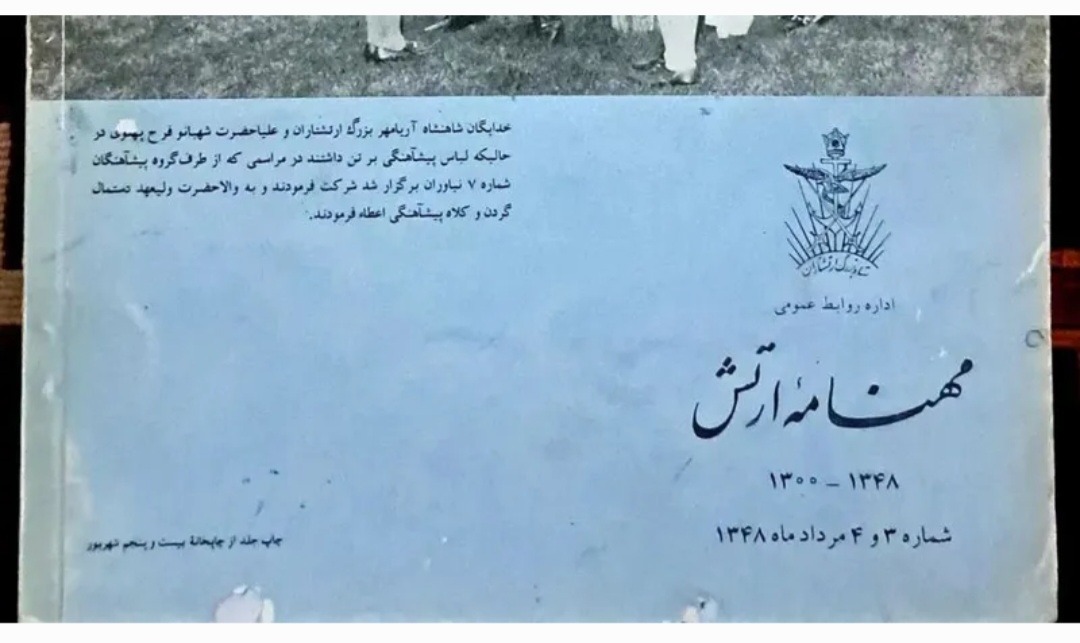 خدایگان شاهنشاه آریامهر بزرگ ارتشتاران و علیاحضرت شهبانو فرح پهلوی در
حالیکه لباس پیشآهنگی بر تن داشتند در مراسمی که از طرف گروه پیشآهنگان
شماره ۷ نیاوران برگزار شد شرکت فرمودند و به والاحضرت ولیعهد دستمال
گردن و کلاه پیشآهنگی اعطاء فرمودند.
ستاد بزرگ ارتشتاران
اداره روابط عمومی
مهنامهٔ ارتش
۱۳۰۰ – ۱۳۴۸
شماره ۳ و ۴ مرداد ماه ۱۳۴۸
چاپ جلد از چاپخانهٔ بیست و پنجم شهریور